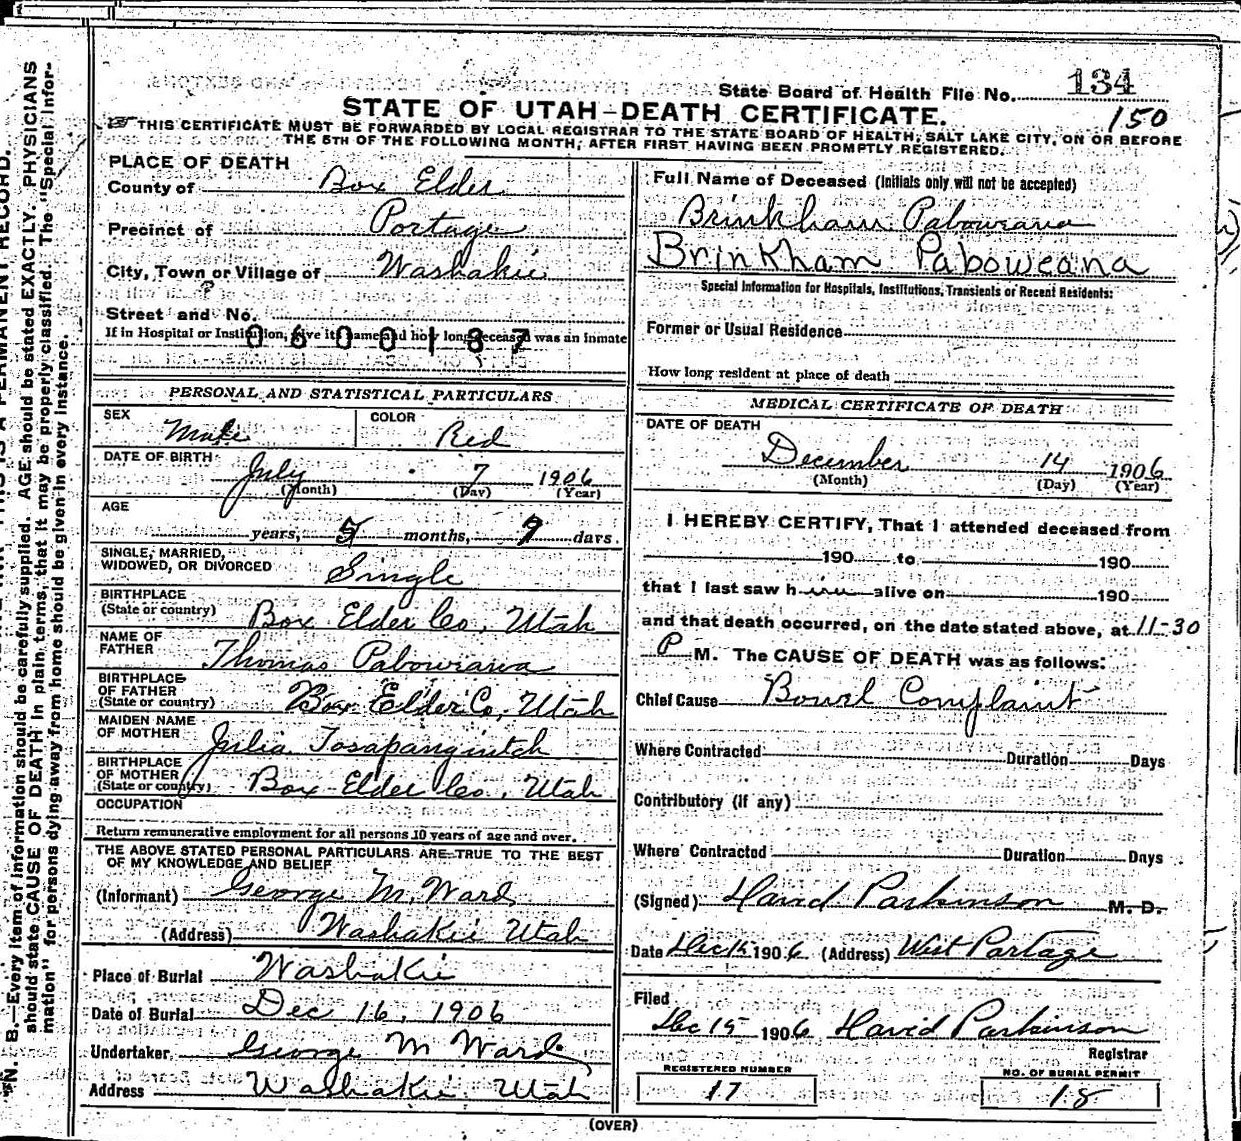 State Board of Health File No. 134
STATE OF UTAH—DEATH CERTIFICATE.
150
THIS CERTIFICATE MUST BE FORWARDED BY LOCAL REGISTRAR TO THE STATE BOARD OF HEALTH, SALT LAKE CITY, ON OR BEFORE
THE 5TH OF THE FOLLOWING MONTH, AFTER FIRST HAVING BEEN PROMPTLY REGISTERED.
PLACE OF DEATH
County of Box Elder
Precinct of Portage
City, Town or Village of Washakie
Street and No.
If in Hospital or Institution, give its name and how long deceased was an inmate
0600187
PERSONAL AND STATISTICAL PARTICULARS
SEX Male COLOR Red
DATE OF BIRTH July 7 1906
(Month) (Day) (Year)
AGE
years, 5 months, 7 days.
SINGLE, MARRIED,
WIDOWED, OR DIVORCED Single
BIRTHPLACE
(State or country) Box Elder Co, Utah
NAME OF
FATHER Thomas
BIRTHPLACE
OF FATHER
(State or country) Box Elder Co, Utah
MAIDEN NAME
OF MOTHER Julia
BIRTHPLACE
OF MOTHER
(State or country) Box Elder Co, Utah
OCCUPATION
Return remunerative employment for all persons 10 years of age and over.
THE ABOVE STATED PERSONAL PARTICULARS ARE TRUE TO THE BEST
OF MY KNOWLEDGE AND BELIEF
(Informant) George M. Ward
(Address) Washakie Utah
Place of Burial Washakie
Date of Burial Dec 16, 1906
Undertaker, George M Ward
Address Washakie, Utah
Full Name of Deceased (Initials only will not be accepted)
Brinkham
Brinkham Paboweana
Special Information for Hospitals, Institutions, Transients or Recent Residents:
Former or Usual Residence
How long resident at place of death
MEDICAL CERTIFICATE OF DEATH
DATE OF DEATH
December 14 1906
(Month) (Day) (Year)
I HEREBY CERTIFY, That I attended deceased from
190 to 190
that I last saw him alive on 190
and that death occurred, on the date stated above, at 11-30
P M. The CAUSE OF DEATH was as follows:
Chief Cause Bowel Complaint
Where Contracted Duration Days
Contributory (if any)
Where Contracted Duration Days
(Signed) David Parkinson M. D.
Date Dec 15 1906 (Address) West Portage
Filed
Dec 15 1906 David Parkinson
Registrar
REGISTERED NUMBER
17
NO. OF BURIAL PERMIT
18
(OVER)
N. B.—Every item of information should be carefully supplied. AGE should be stated EXACTLY. PHYSICIANS
should state CAUSE OF DEATH in plain terms, that it may be properly classified. The "Special Infor-
mation" for persons dying away from home should be given in every instance.